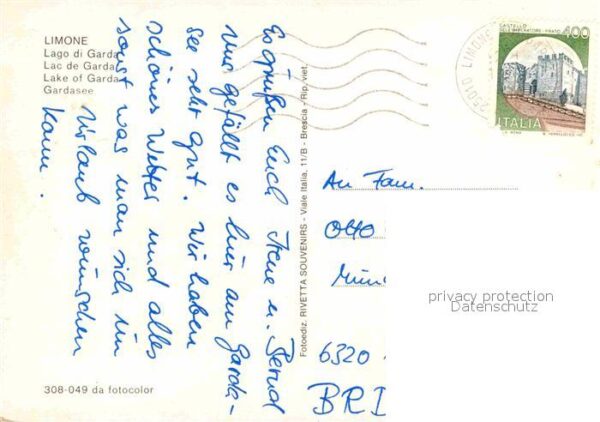 LIMONE
Lago di Garda
Lac de Garda
Lake of Garda
Gardasee
Es grüßen Euch Irene u. Bernd
uns gefällt es hier am Garda-
see sehr gut. Wir haben
schönes Wetter und alles
sonst was man sich im
Urlaub wünschen
kann.
308-049 da fotocolor
Fotoediz. RIVETTA SOUVENIRS - Viale Italia, 11/B - Brescia - Rip. viet.
CASTELLO
DELL'IMPERATORE - PRATO
400
ITALIA
25010 LIMONE
An Fam.
Otto
6320
BRD
privacy protection
Datenschutz